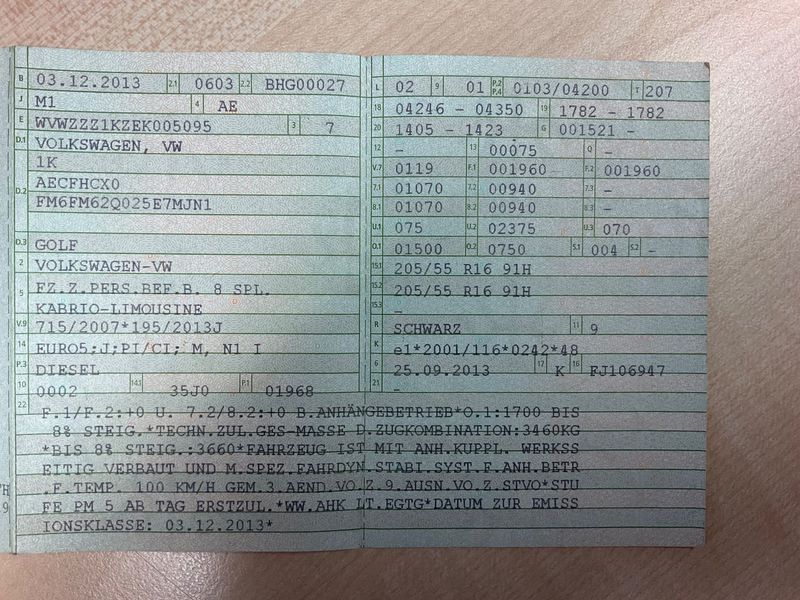 B 03.12.2013 2.1 0603 2.2 BHG00027
J M1 4 AE
E WVWZZZ1KZEK005095 3 7
D.1 VOLKSWAGEN, VW
1K
D.2 AECFHCX0
FM6FM62Q025E7MJN1
D.3 GOLF
2 VOLKSWAGEN-VW
5 FZ.Z.PERS.BEF.B. 8 SPL.
KABRIO-LIMOUSINE
V.9 715/2007*195/2013J
14 EURO5;J;PI/CI; M, N1 I
P.3 DIESEL
10 0002 14.1 35J0 P.1 01968
L 02 9 01 P.2 P.4 0103/04200 T 207
18 04246 - 04350 19 1782 - 1782
20 1405 - 1423 G 001521 -
12 - 13 00075 Q -
V.7 0119 F.1 001960 F.2 001960
7.1 01070 7.2 00940 7.3 -
8.1 01070 8.2 00940 8.3 -
U.1 075 U.2 02375 U.3 070
O.1 01500 O.2 0750 S.1 004 S.2 -
15.1 205/55 R16 91H
15.2 205/55 R16 91H
15.3 -
R SCHWARZ 11 9
K e1*2001/116*0242*48
6 25.09.2013 17 K 16 FJ106947
21 -
22 F.1/F.2:+0 U. 7.2/8.2:+0 B.ANHÄNGEBETRIEB*O.1:1700 BIS
8% STEIG.*TECHN.ZUL.GES-MASSE D.ZUGKOMBINATION:3460KG
*BIS 8% STEIG.:3660*FAHRZEUG IST MIT ANH.KUPPL. WERKSS
EITIG VERBAUT UND M.SPEZ.FAHRDYN.STABI.SYST.F.ANH.BETR
.F.TEMP. 100 KM/H GEM.3.AEND.VO.Z.9.AUSN.VO.Z.STVO*STU
FE PM 5 AB TAG ERSTZUL.*WW.AHK LT.EGTG*DATUM ZUR EMISS
IONSKLASSE: 03.12.2013*